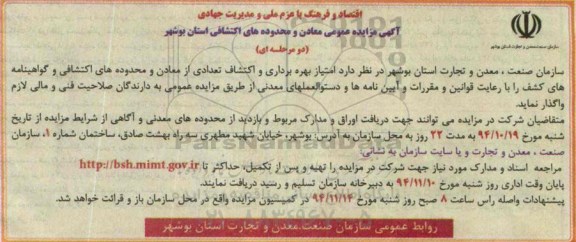 اقتصاد و فرهنگ با عزم ملی و مدیریت جهادی
آگهی مزایده عمومی معادن و محدوده های اکتشافی استان بوشهر
(دو مرحله ای)
سازمان صنعت، معدن و تجارت استان بوشهر
سازمان صنعت ، معدن و تجارت استان بوشهر در نظر دارد امتیاز بهره برداری و اکتشاف تعدادی از معادن و محدوده های اکتشافی و گواهینامه
های کشف را با رعایت قوانین و مقررات و آیین نامه ها و دستوالعملهای معدنی از طریق مزایده عمومی به دارندگان صلاحیت فنی و مالی لازم
واگذار نماید.
متقاضیان شرکت در مزایده می توانند جهت دریافت اوراق و مدارک مربوط و بازدید از محدوده های معدنی و آگاهی از شرایط مزایده از تاریخ
شنبه مورخ ۹۴/۱۰/۱۹ به مدت ۲۲ روز به محل سازمان به آدرس: بوشهر، خیابان شهید مطهری سه راه بهشت صادق، ساختمان شماره ۱، سازمان
صنعت ، معدن و تجارت و یا سایت سازمان به نشانی:
http://bsh.mimt.gov.ir مراجعه اسناد و مدارک مورد نیاز جهت شرکت در مزایده را تهیه و پس از تکمیل، حداکثر تا
پایان وقت اداری روز شنبه مورخ ۹۴/۱۱/۱۰ به دبیرخانه سازمان تسلیم و رسید دریافت نمایند.
پیشنهادات واصله راس ساعت ۸ صبح روز شنبه مورخ ۹۴/۱۱/۱۴ در کمیسیون مزایده واقع در محل سازمان باز و قرائت خواهد شد.
روابط عمومی سازمان صنعت،معدن و تجارت استان بوشهر